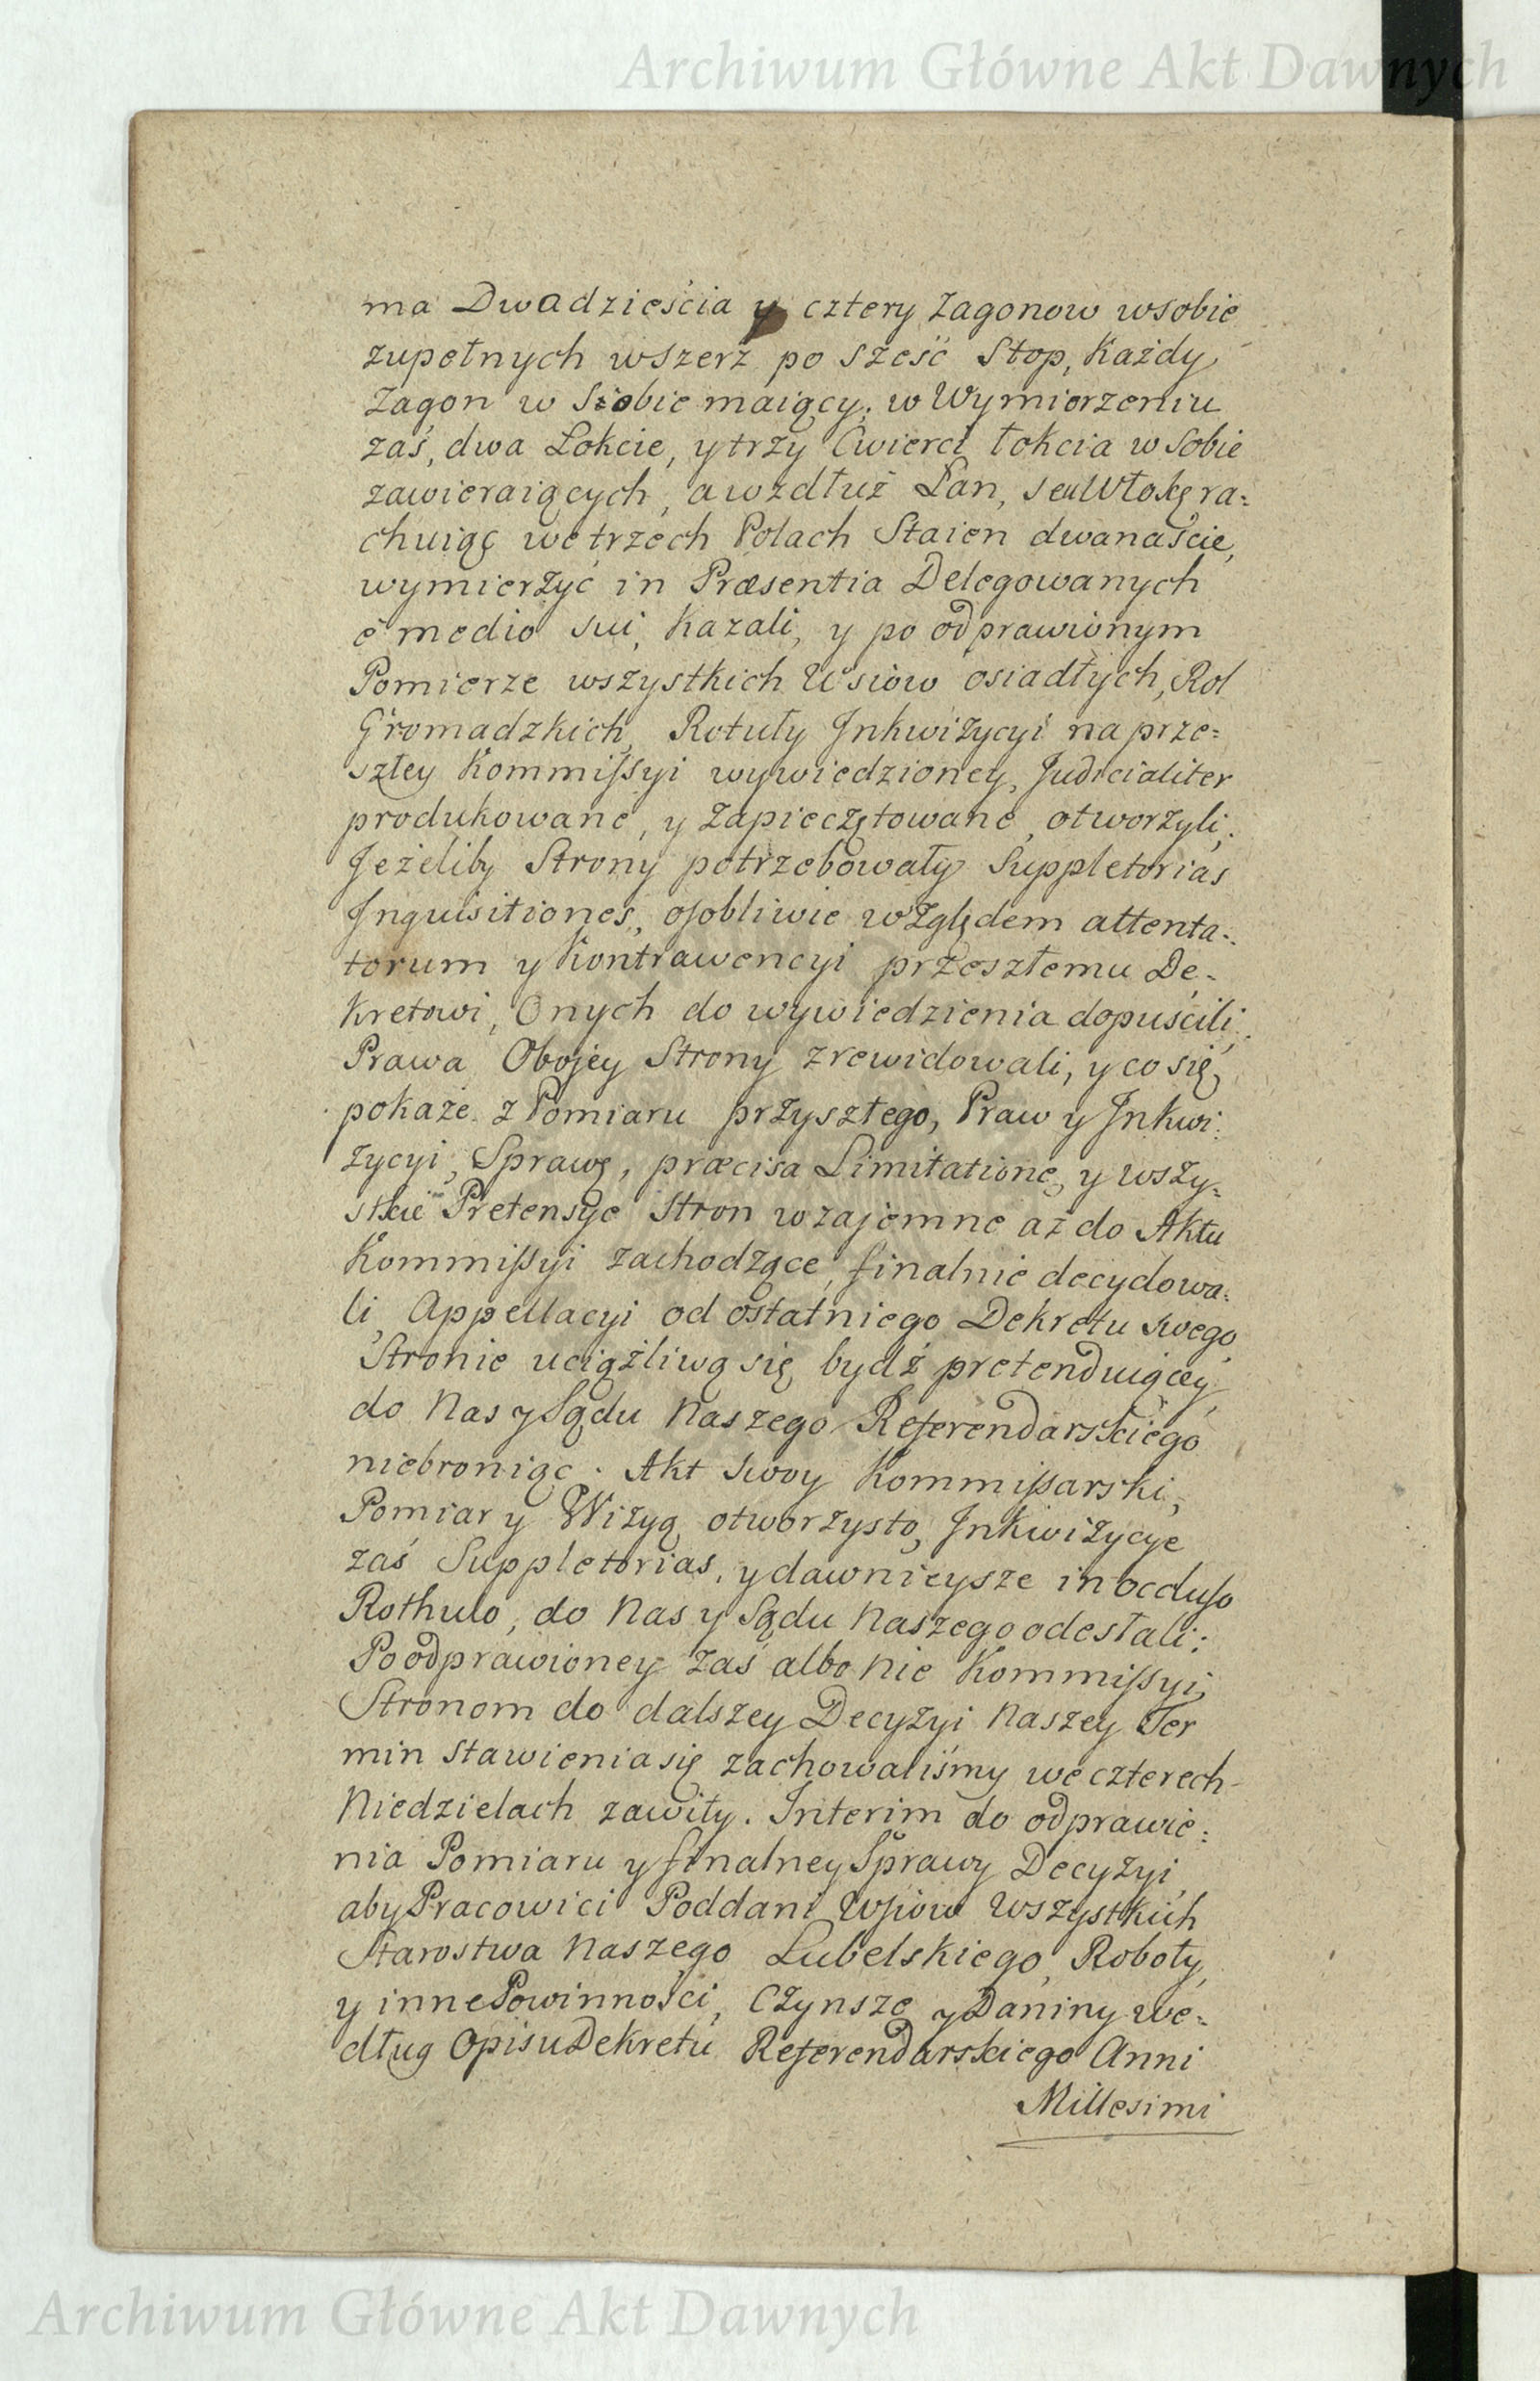 Archiwum Główne Akt Dawnych
ma Dwadzieścia y cztery Zagonow wsobie
zupełnych wszerz po sześć Stop, Każdy
Zagon w Siobie maiący, w Wymierzeniu
zaś, dwa Łokcie, y trzy Cwierci łokcia w Sobie
zawieraiących, a wzdłuż Łan, seu Włokę ra=
chuiąc we trzech Polach Staien dwanaście,
wymierzyć in Præsentia Delegowanych
é medio sui, Kazali, y po odprawionym
Pomierze wszystkich Wsiow osiadłych, Rol
Gromadzkich, Rotuły Jnkwizycyi na prze=
szłey Kommissyi wywiedzioney, Judicialiter
produkowane, y Zapieczętowane, otworzyli,
Jeżeliby Strony potrzebowały Suppletorias
Jnquisitiones, osobliwie względem attenta=
torum y Kontrawencyi przeszłemu De=
kretowi, Onych do wywiedzienia dopuścili,
Prawa Obojey Strony zrewidowali, y co się
pokaże z Pomiaru przyszłego, Praw y Jnkwi=
zycyi, Sprawę, præcisa Limitatione, y wszy=
stkie Pretensye Stron wzajemne aż do Aktu
Kommissyi zachodzące, finalnie decydowa=
li, Appellacyi od ostatniego Dekretu swego
Stronie uciążliwą się bydź pretenduiącey,
do Nas y Sądu Naszego Referendarskiego
niebroniąc. Akt Swoy Kommissarski,
Pomiar y Wizyą otworzysto, Jnkwizycye
zaś Suppletorias, y dawnieysze in occluso
Rothulo, do Nas y Sądu Naszego odesłali:
Po odprawioney zaś albo nie Kommissyi,
Stronom do dalszey Decyzyi Naszey Ter
min stawienia się zachowaliśmy we czterech
Niedzielach zawity. Interim do odprawie=
nia Pomiaru y finalney Sprawy Decyzyi,
aby Pracowici Poddani Wsiow Wszystkich
Starostwa Naszego Lubelskiego, Roboty,
y inne Powinności, Czynsze y Daniny we=
dług Opisu Dekretu Referendarskiego Anni
Millesimi
Archiwum Główne Akt Dawnych